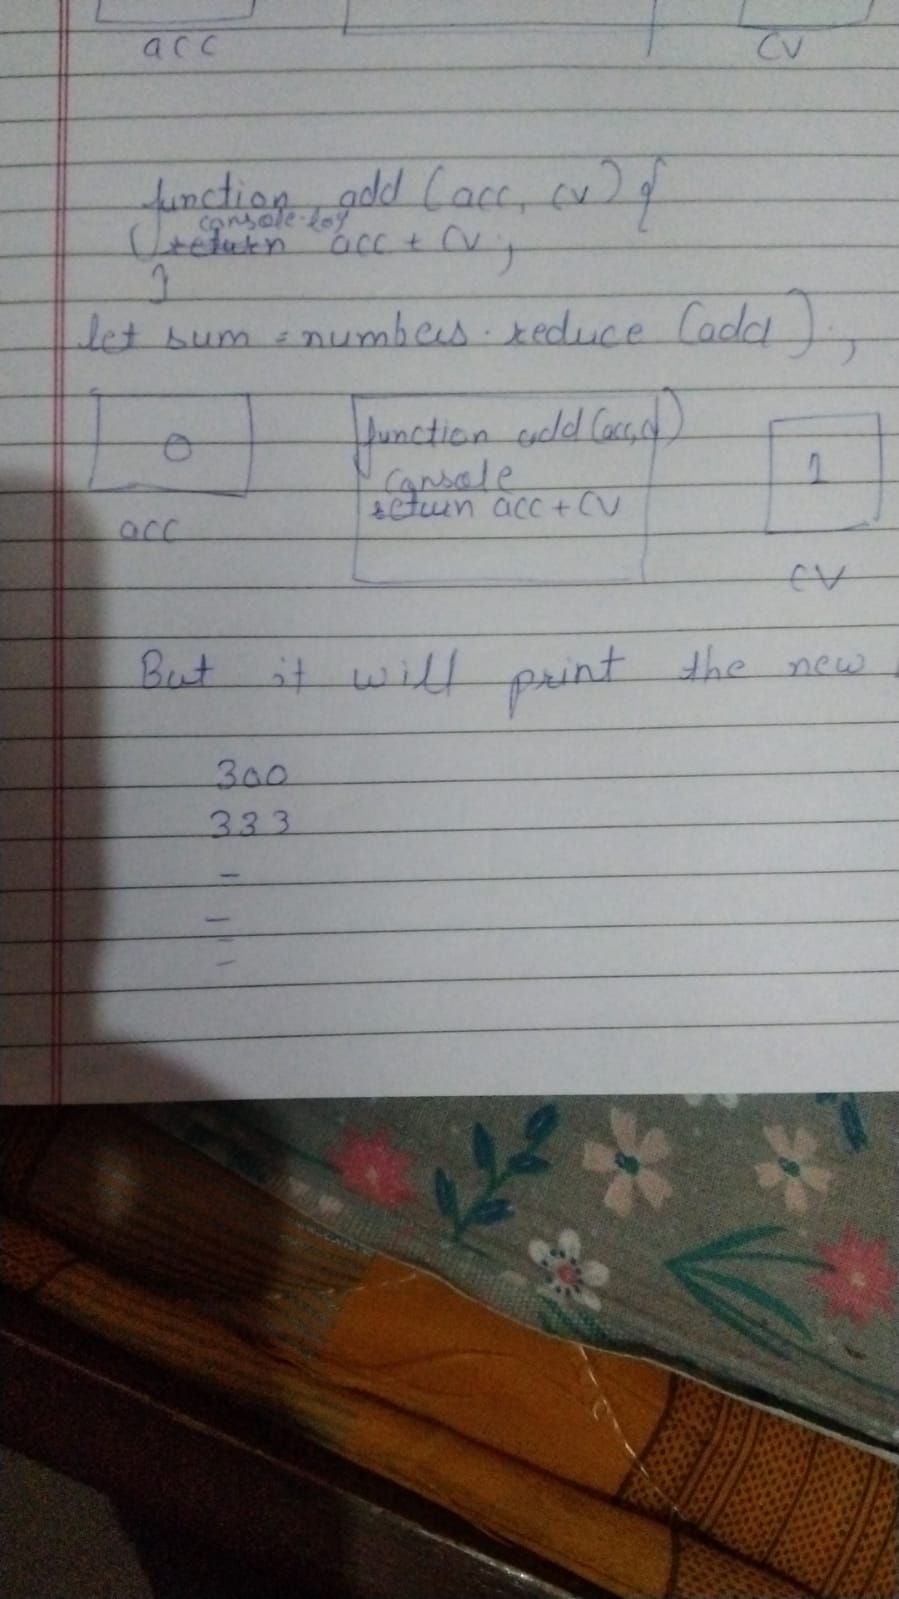 acc
cv
function add (acc, cv) {
console.log
return acc + cv;
}
let sum = numbers.reduce (add);
0
function add (acc, cv)
1
console
return acc + cv
acc
cv
But it will print the new
300
333
–
–
–
–